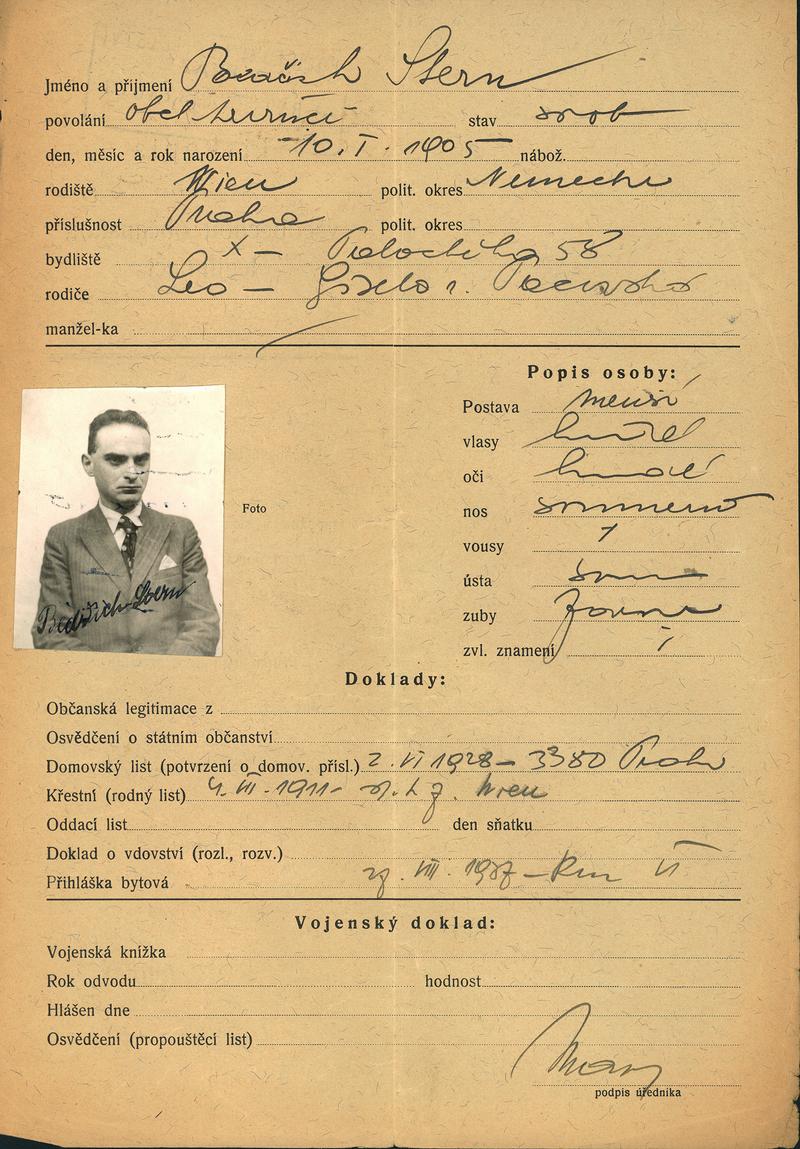 Jméno a příjmení Bedřich Stern
povolání obch. stav svob
den, měsíc a rok narození 10. I. 1905 nábož.
rodiště Wien polit. okres Německo
příslušnost Praha polit. okres
bydliště X – Palackého 58
rodiče Leo – Gisela r.
manžel-ka
Popis osoby:
Postava menší
vlasy hnědé
oči hnědé
nos souměrný
vousy
ústa soum
zuby zdravé
zvl. znamení
Foto
Bedřich Stern
Doklady:
Občanská legitimace z
Osvědčení o státním občanství
Domovský list (potvrzení o domov. přísl.) 2. VI 1928 – 3380 Praha
Křestní (rodný list) 4. III. 1911 – Wien
Oddací list den sňatku
Doklad o vdovství (rozl., rozv.)
Přihláška bytová VIII. 1937
Vojenský doklad:
Vojenská knížka
Rok odvodu hodnost
Hlášen dne
Osvědčení (propouštěcí list)
podpis úředníka